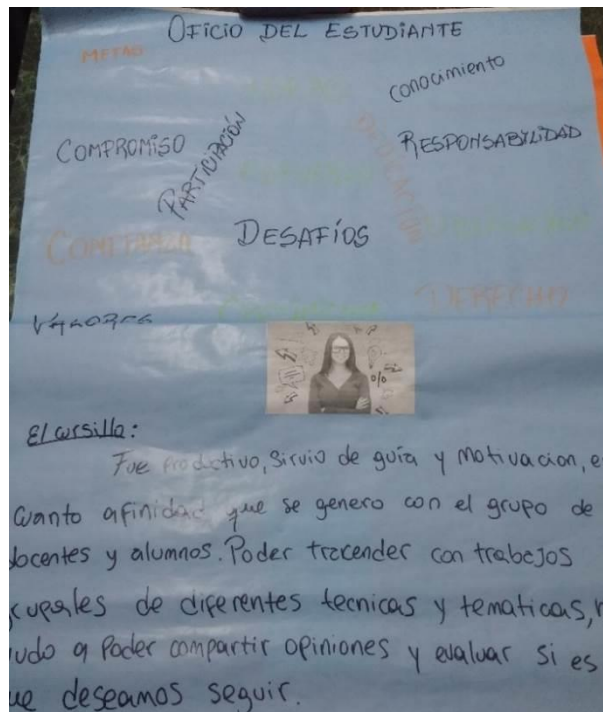 OFICIO DEL ESTUDIANTE
METAS
CONOCIMIENTO
COMPROMISO
PARTICIPACIÓN
RESPONSABILIDAD
DEDICACIÓN
DESAFÍOS
DERECHO
VALORES
%
El cursillo:
Fue productivo, sirvio de guía y motivacion, e
cuanto afinidad que se genero con el grupo de
docentes y alumnos. Poder trecender con trabajos
grupales de diferentes tecnicas y tematicas,
udo a Poder compartir opiniones y evaluar si es
ue deseamos seguir.